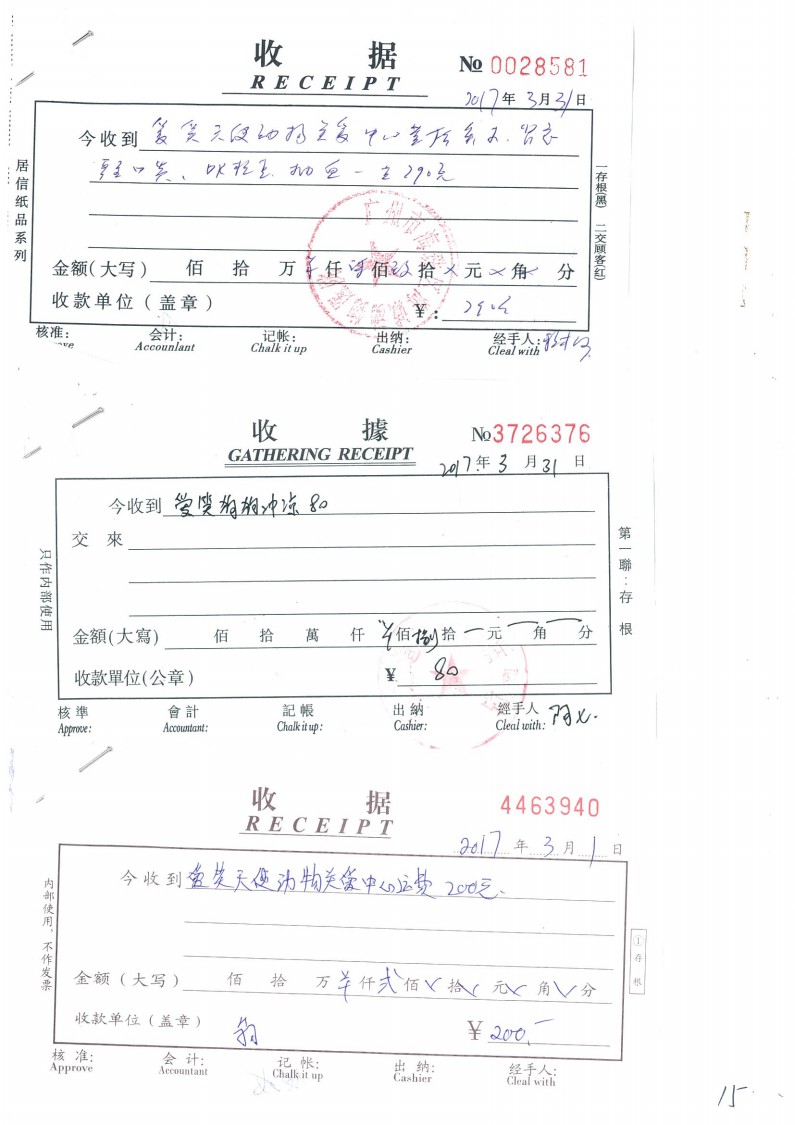 收 据
RECEIPT
№ 0028581
2017年 3月31日
今收到 爱笑天使动物关爱中心
290元
金额(大写) 佰 拾 万 仟 佰 拾 元 角 分
收款单位(盖章) ¥:
核准: 会计: 记帐: 出纳: 经手人:
Accounlant Chalk it up Cashier Cleal with
居信纸品系列
一存根(黑) 二交顾客(红)
收 據
GATHERING RECEIPT
№3726376
2017年 3 月 31 日
今收到 爱笑狗狗冲凉 80
交 來
金額(大寫) 佰 拾 萬 仟 佰捌拾 元 角 分
收款單位(公章) ¥ 80
核準 會計 記帳 出納 經手人
Approve: Accountant: Chalk it up: Cashier: Cleal with:
只作内部使用
第一聯:存根
收 据
RECEIPT
4463940
2017 年 3 月 1 日
今收到 爱笑天使动物关爱中心运费 200元.
金额(大写) 佰 拾 万 仟贰佰 拾 元 角 分
收款单位(盖章) ¥ 200.—
核准: 会计: 记帐: 出纳: 经手人:
Approve Accountant Chalk it up Cashier Cleal with
内部使用,不作发票
①存根
15